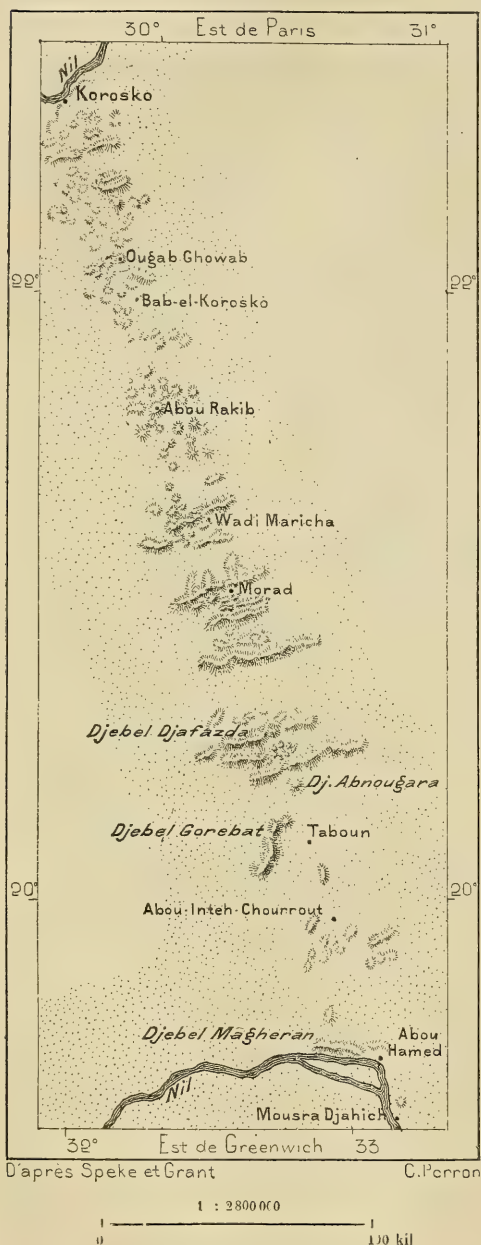 30° Est de Paris 31°
Nil
Korosko
Ougab Ghowab
22° 22°
Bab-el-Korosko
Abou Rakib
Wadi Maricha
Morad
Djebel Djafazda
Dj. Abnougara
Djebel Gorebat
Taboun
20° 20°
Abou-Inteh-Chourrout
Djebel Magheran
Abou
Hamed
Nil
Mousra Djahich
32° Est de Greenwich 33
D'après Speke et Grant C. Perron
1 : 2800000
0 100 kil